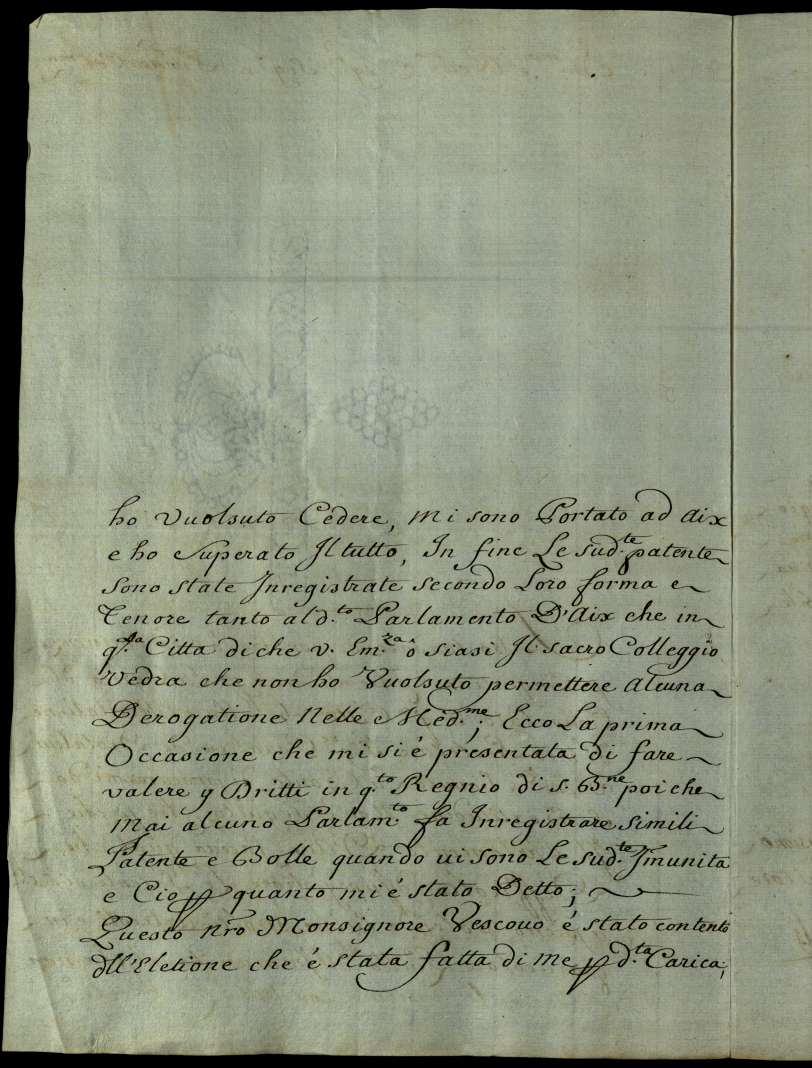 ho Vuolsuto Cedere, mi sono Portato ad aix
e ho Superato Il tutto, In fine Le sud.te patente
sono state Inregistrate secondo Loro forma e
Tenore tanto al d.to Parlamento D'Aix che in
q.ta Citta di che v. Em.za ô siasi Il sacro Colleggio
Vedra che non ho Vuolsuto permettere alcuna
Derogatione Nelle Med.me; Ecco La prima
Occasione che mi si é presentata di fare
valere y Dritti in q.to Regnio di s. B.ne poi che
mai alcuno Parlam.to fa Inregistrare simili
Patente e Bolle quando ui sono Le sud.te Imunita
e Cio p quanto mi é stato Detto;
Questo nro Monsignore Vescouo é stato contento
dll'Eletione che é stata fatta di me p d.ta Carica;